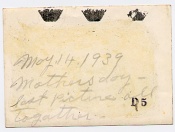 May 14. 1939
Mothers day -
last picture all
together. -
D5